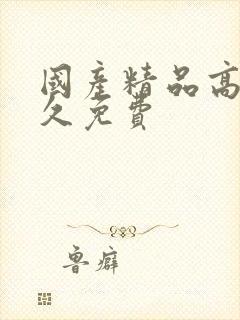 國產精品高
久免費
魯癖